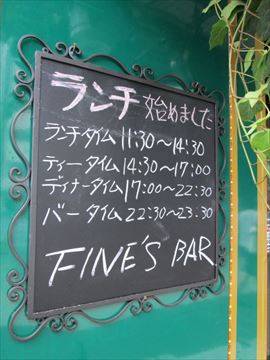 ランチ始めました
ランチタイム 11:30〜14:30
ティータイム 14:30〜17:00
ディナータイム 17:00〜22:30
バータイム 22:30〜23:30
FINE'S BAR